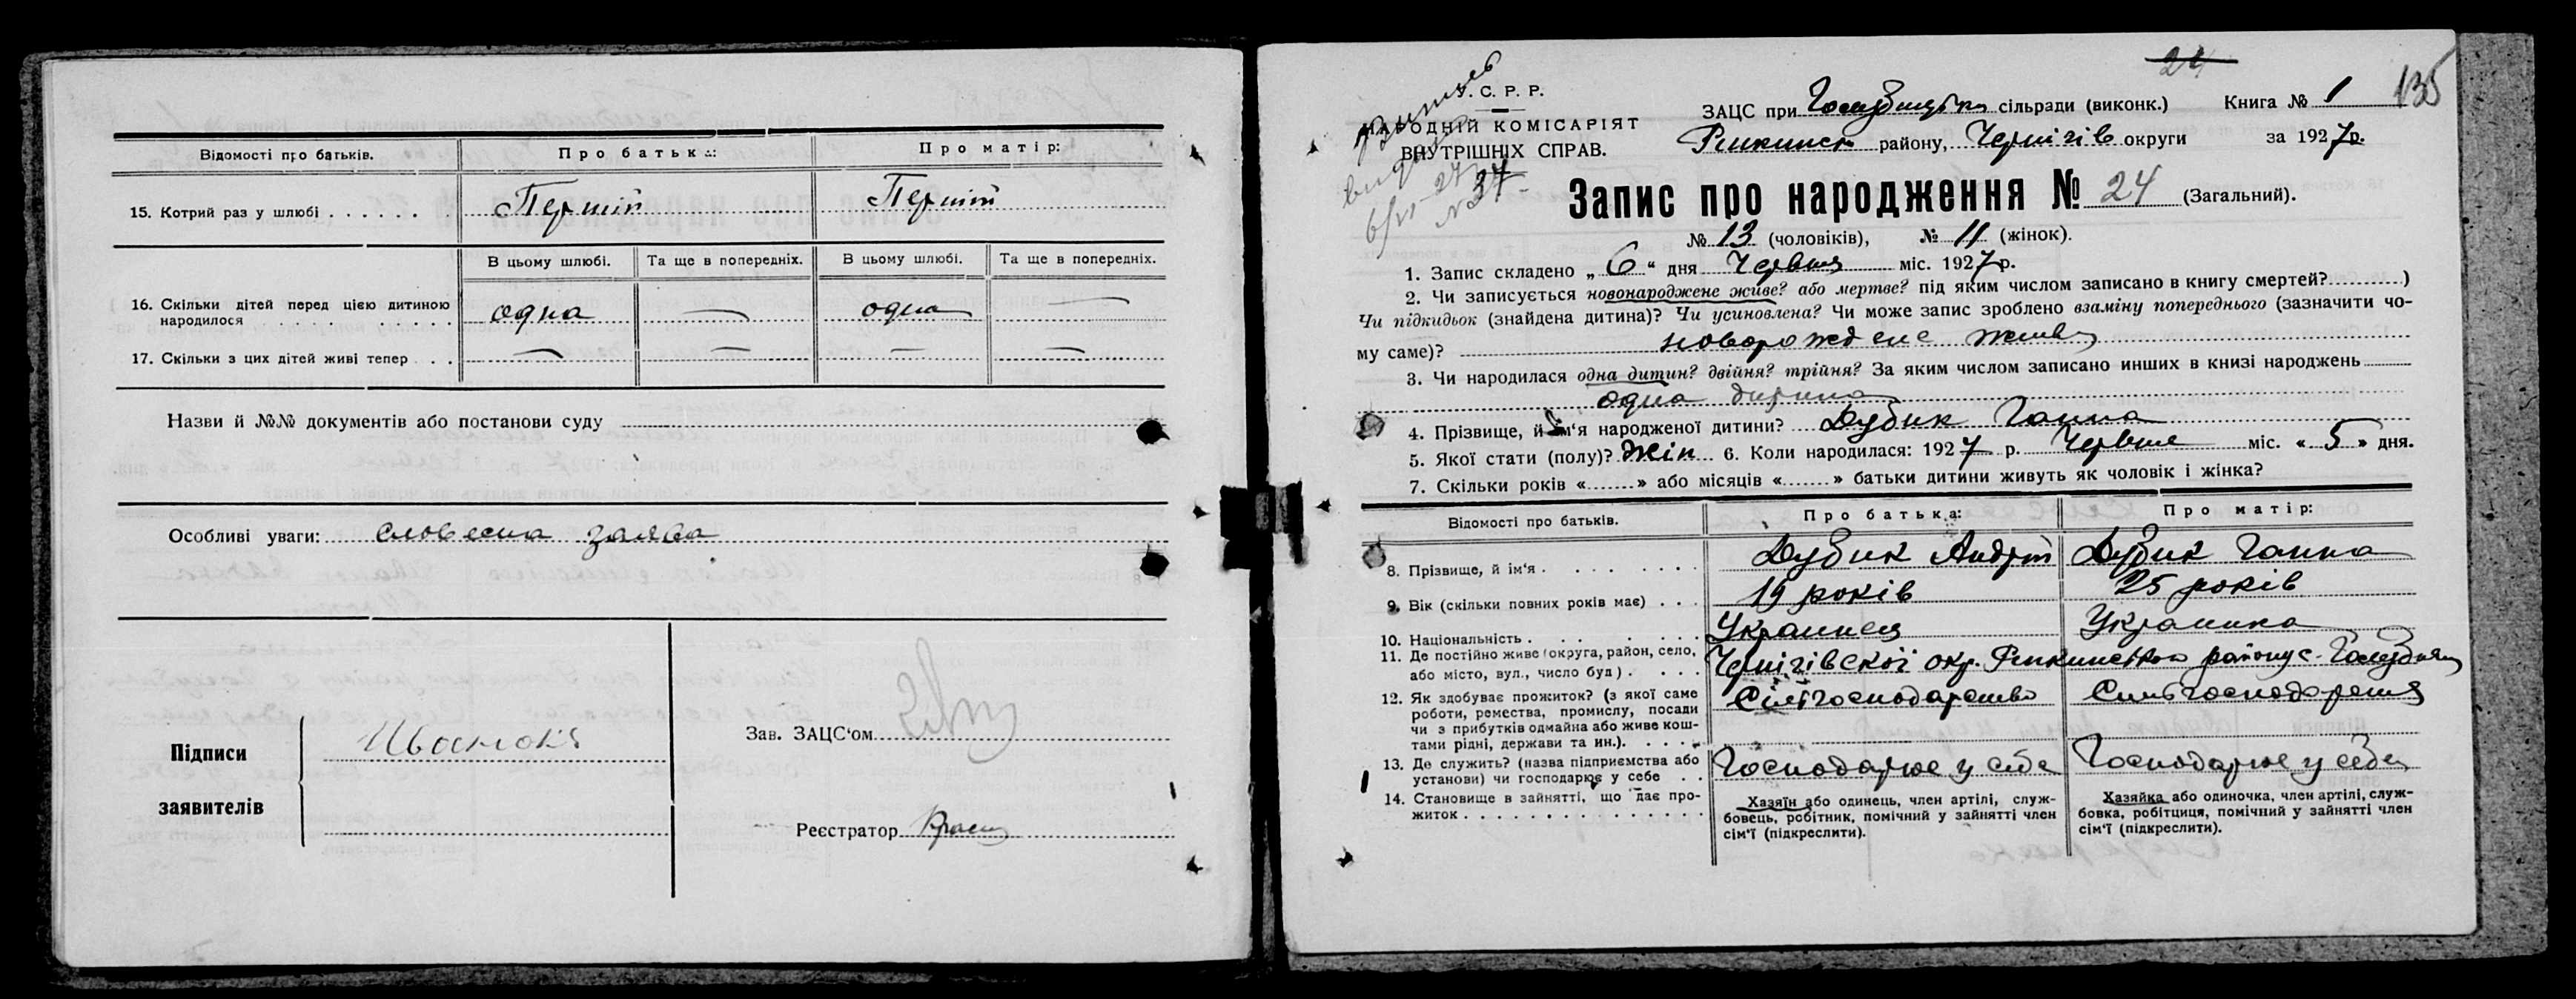 Відомості про батьків. Про батька: Про матір:
15. Котрий раз у шлюбі . . . . . . Перший Перший
В цьому шлюбі. Та ще в попередніх. В цьому шлюбі. Та ще в попередніх.
16. Скільки дітей перед цією дитиною
народилося . . . . . . . . . одна — одна —
17. Скільки з цих дітей живі тепер . . . — — — —
Назви й №№ документів або постанови суду
Особливі уваги: словесна заява
Підписи
заявителів
Зав. ЗАЦС'ом
Реєстратор
24
135
У. С. Р. Р.
НАРОДНІЙ КОМІСАРІЯТ
ВНУТРІШНІХ СПРАВ.
6/VI-27
№ 37
ЗАЦС при сільради (виконк.) Книга № 1
Ріпкинськ району, Чернігів округи за 1927р.
Запис про народження № 24 (Загальний).
№ 13 (чоловіків), № 11 (жінок).
1. Запис складено „ 6 “ дня Червня міс. 1927р.
2. Чи записується новонароджене живе? або мертве? під яким числом записано в книгу смертей?..........)
Чи підкидьок (знайдена дитина)? Чи усиновлена? Чи може запис зроблено взаміну попереднього (зазначити чо-
му саме)? новорождене живе
3. Чи народилася одна дитин? двійня? трійня? За яким числом записано инших в книзі народжень
одна дитина
4. Прізвище, й ім'я народженої дитини? Дубик Ганна
5. Якої стати (полу)? Жін 6. Коли народилася: 1927 р. Червня міс. « 5 » дня.
7. Скільки років «.......» або місяців «.......» батьки дитини живуть як чоловік і жінка?
Відомості про батьків. Про батька: Про матір:
8. Прізвище, й ім'я . . . . . . . Дубик Андрій Дубик Ганна
9. Вік (скільки повних років має) . . . 19 років 25 років
10. Національність . . . . . . . Украинец Украинка
11. Де постійно живе (округа, район, село,
або місто, вул., число буд) . . . . Чернігівской окр. Ріпкинського району с.
12. Як здобуває прожиток? (з якої саме
роботи, ремества, промислу, посади
чи з прибутків одмайна або живе кош-
тами рідні, держави та ин.). . . . . Сільгосподарство
13. Де служить? (назва підприємства або
установи) чи господарює у себе . . Господарює у себе Господарює у себе
14. Становище в зайнятті, що дає про-
житок . . . . . . . . . . . . . . .
Хазяїн або одинець, член артілі, служ-
бовець, робітник, помічний у зайнятті член
сім'ї (підкреслити).
Хазяйка або одиночка, член артілі, служ-
бовка, робітниця, помічний у зайнятті член
сім'ї (підкреслити).